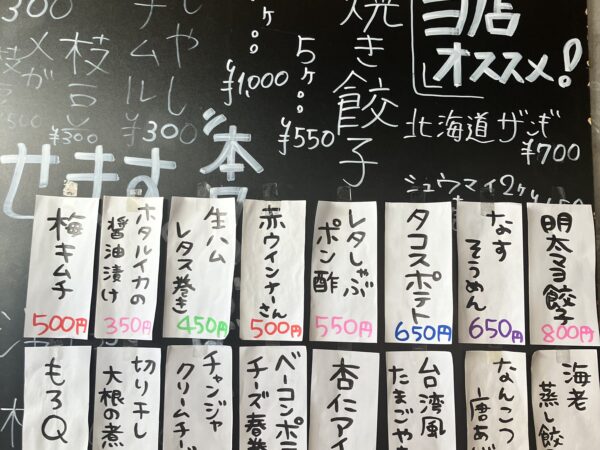 当店
オススメ!
北海道ザンギ
¥700
シュウマイ2ケ
焼き餃子
5ケ
¥550
¥1,000
チャムル
¥300
枝豆
¥300
300
せます
本
明太マヨ餃子
800円
なす
そうめん
650円
タコスポテト
650円
レタしゃぶ
ポン酢
550円
赤ウインナーさん
500円
生ハム
レタス巻き
450円
ホタルイカの
醤油漬け
350円
梅キムチ
500円
海老
蒸し餃
なんこつ
唐あ
台湾風
たまごや
杏仁アイ
ベーコンポテ
チーズ春巻
チャンジャ
クリームチー
切り干し
大根の煮
もろQ